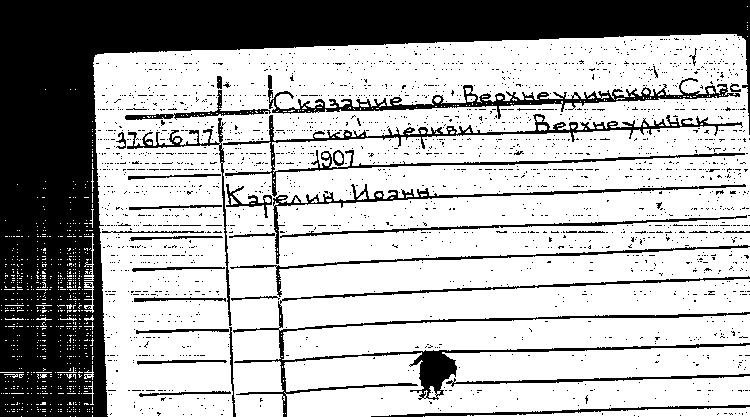 Сказание о Верхнеудинской Спас-
3761.6.77 ской церкви. Верхнеудинск,
1907
Карелин, Иоанн.